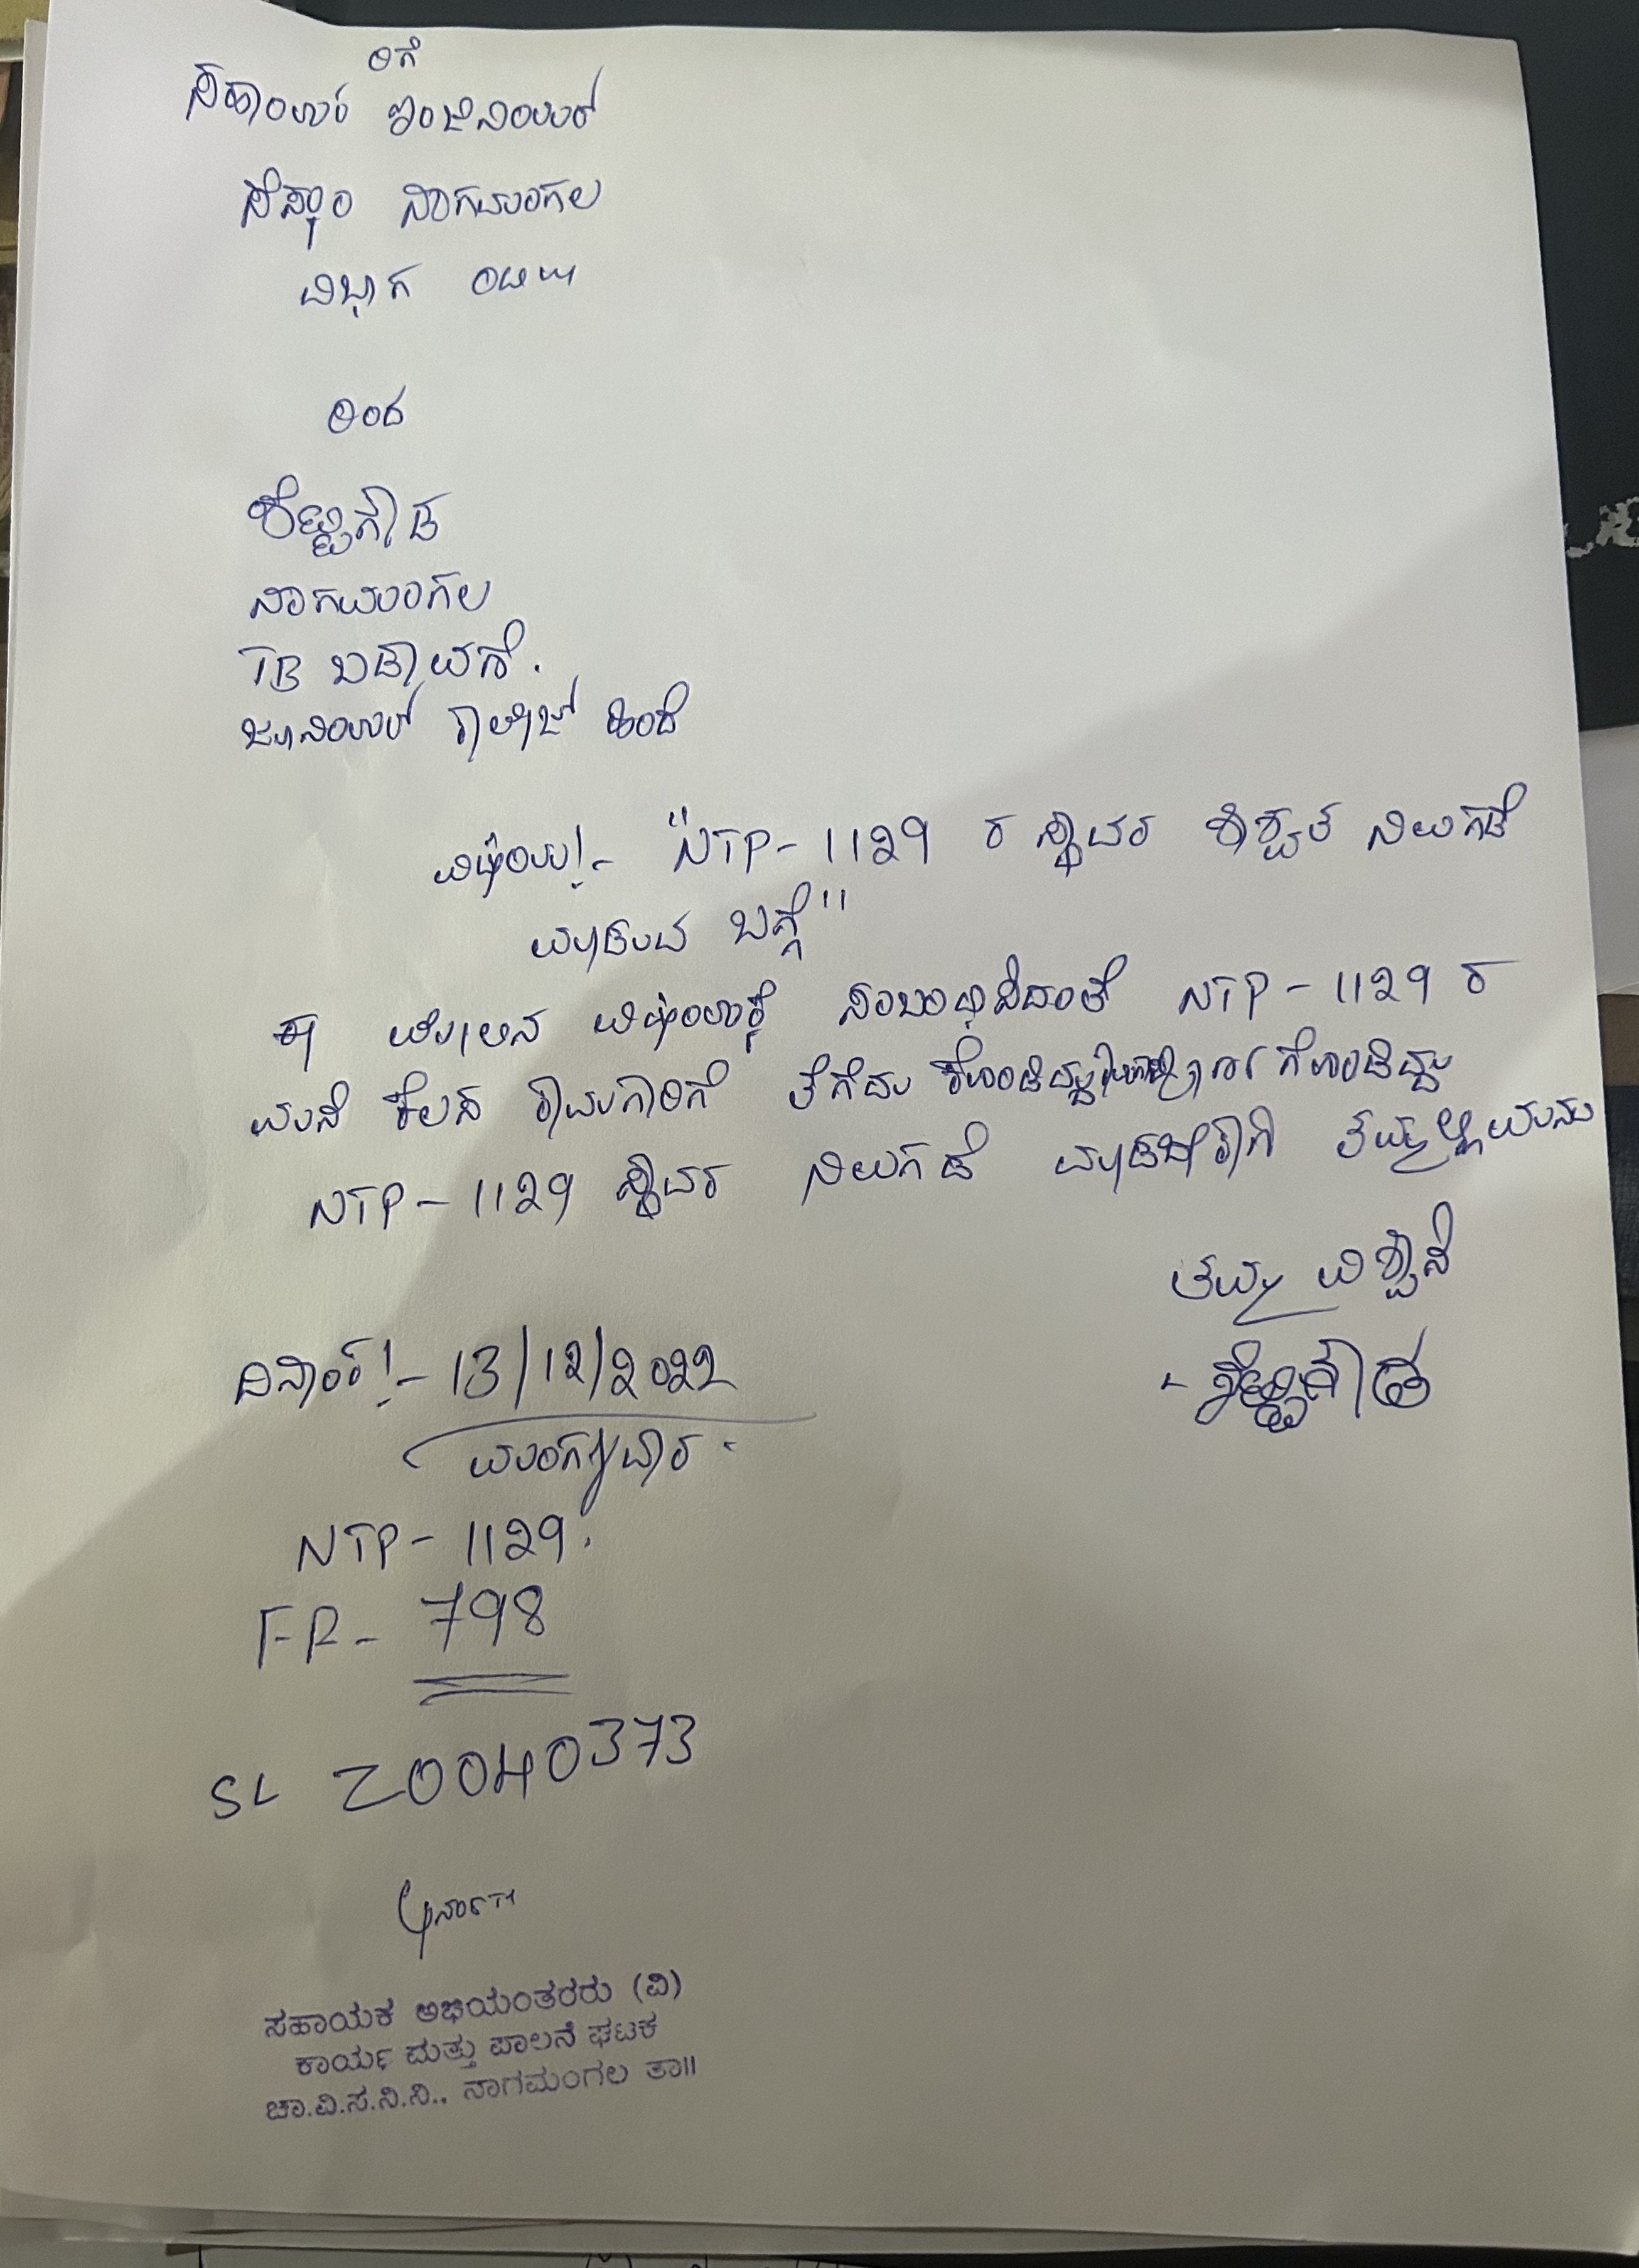 ರಿಗೆ
ಸಹಾಯಕ ಇಂಜಿನಿಯರ್
ಸೆಸ್ಕಾಂ ನಾಗಮಂಗಲ
ವಿಭಾಗ
ರಿಂದ
ಕೆಟ್ಟಿಗೌಡ
ನಾಗಮಂಗಲ
TB ಬಡಾವಣೆ.
ಜೂನಿಯರ್ ಕಾಲೇಜ್ ಹಿಂದೆ
ವಿಷಯ!- "NTP-1129 ರ ಸ್ಥಾವರ ಶಾಶ್ವತ ನಿಲುಗಡೆ
ಮಾಡುವ ಬಗ್ಗೆ"
ಈ ಮೇಲಿನ ವಿಷಯಕ್ಕೆ ಸಂಬಂಧಿಸಿದಂತೆ NTP-1129 ರ
ಮನೆ ಕೆಲಸ ಕಾಮಗಾರಿಗೆ ತೆಗೆದು ಕೊಂಡಿದ್ದು ಗೊಂಡಿದ್ದು
NTP-1129 ಸ್ಥಾವರ ನಿಲುಗಡೆ ಮಾಡಬೇಕಾಗಿ ತಮ್ಮಲ್ಲಿ ಮನವಿ
ತಮ್ಮ ವಿಶ್ವಾಸಿ
ದಿನಾಂಕ!- 13/12/2022
ಮಂಗಳವಾರ.
NTP-1129.
FR- 798
SL Z0040373
ಸಹಾಯಕ ಅಭಿಯಂತರರು (ವಿ)
ಕಾರ್ಯ ಮತ್ತು ಪಾಲನೆ ಘಟಕ
ಚಾ.ವಿ.ಸ.ನಿ.ನಿ., ನಾಗಮಂಗಲ ತಾ||